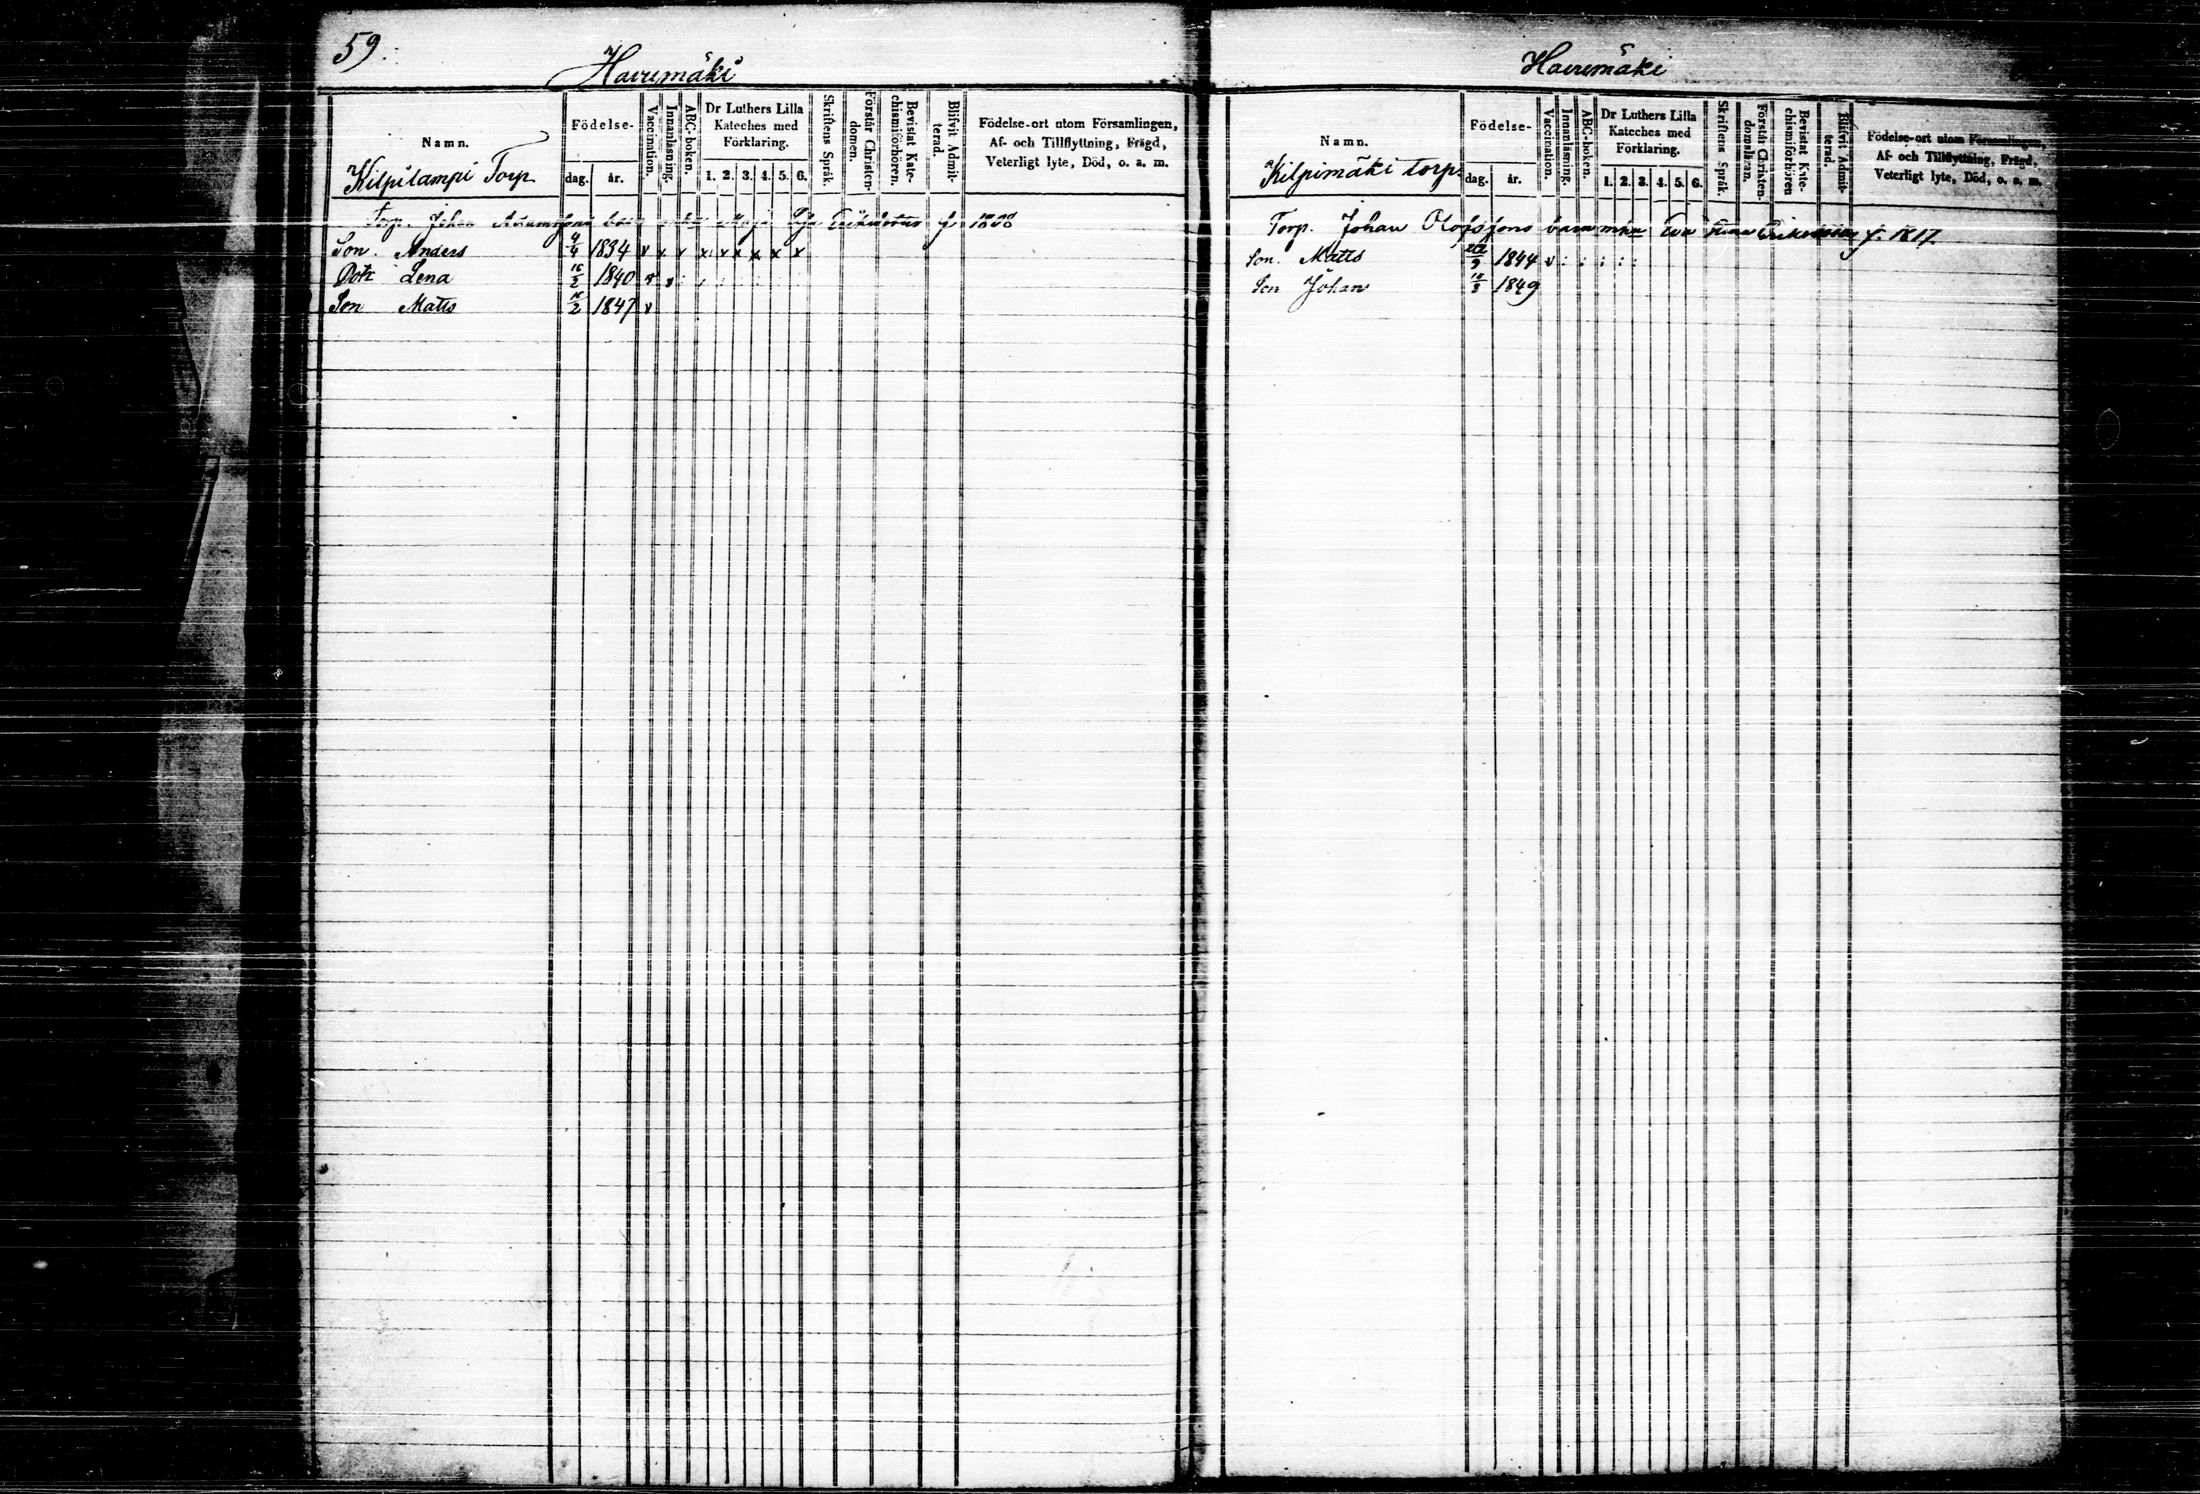 59.
Havumäki
Namn.
Födelse-
dag. år.
Vaccination.
Innanläsning.
ABC-boken.
Dr Luthers Lilla Kateches med Förklaring.
1. 2. 3. 4. 5. 6.
Skriftens Språk.
Förstår Christendomen.
Bevistat Katechismiförhören.
Blifvit Admitterad.
Födelse-ort utom Församlingen,
Af- och Tillflyttning, Frägd,
Veterligt lyte, Död, o. a. m.
Kilpilampi Torp
Torp. Johan Adamsons barn Maja f. 1808
Son. Anders 4/4 1834 v x x x x x x x x
Dotr Lena 1840
Son Matts 1847 v
Havumäki
Namn.
Födelse-
dag. år.
Vaccination.
Innanläsning.
ABC-boken.
Dr Luthers Lilla Kateches med Förklaring.
1. 2. 3. 4. 5. 6.
Skriftens Språk.
Förstå Christendomsläran.
Bevistat Katechismiförhören
Blifvit Admitterad.
Födelse-ort utom Församlingen,
Af- och Tillflyttning, Frägd,
Veterligt lyte, Död, o. a. m.
Kilpimäki torp.
Torp. Johan Olofssons barn m Eva f. 1817.
Son. Matts 1844 v : : : : :
Son Johan 1849